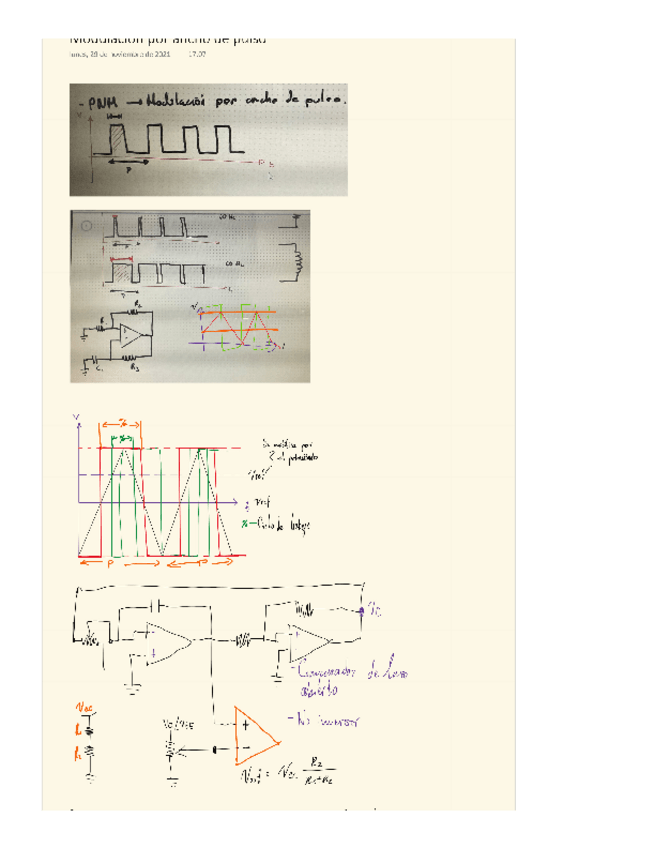 Modulación por ancho de pulso
lunes, 29 de noviembre de 2021 17:07
- PWM → Modulación por ancho de pulso.
V
P
60 Hz
60 Hz
R2
R3
C1
V
%
%
Se modifica por
Vref
Vref
% - Ciclo de trabajo
P P
- Comparador de lazo
abierto
- No inversor
Vcc
R1
R2
Vcc/VEE
Vref = Vcc R2 / R1+R2